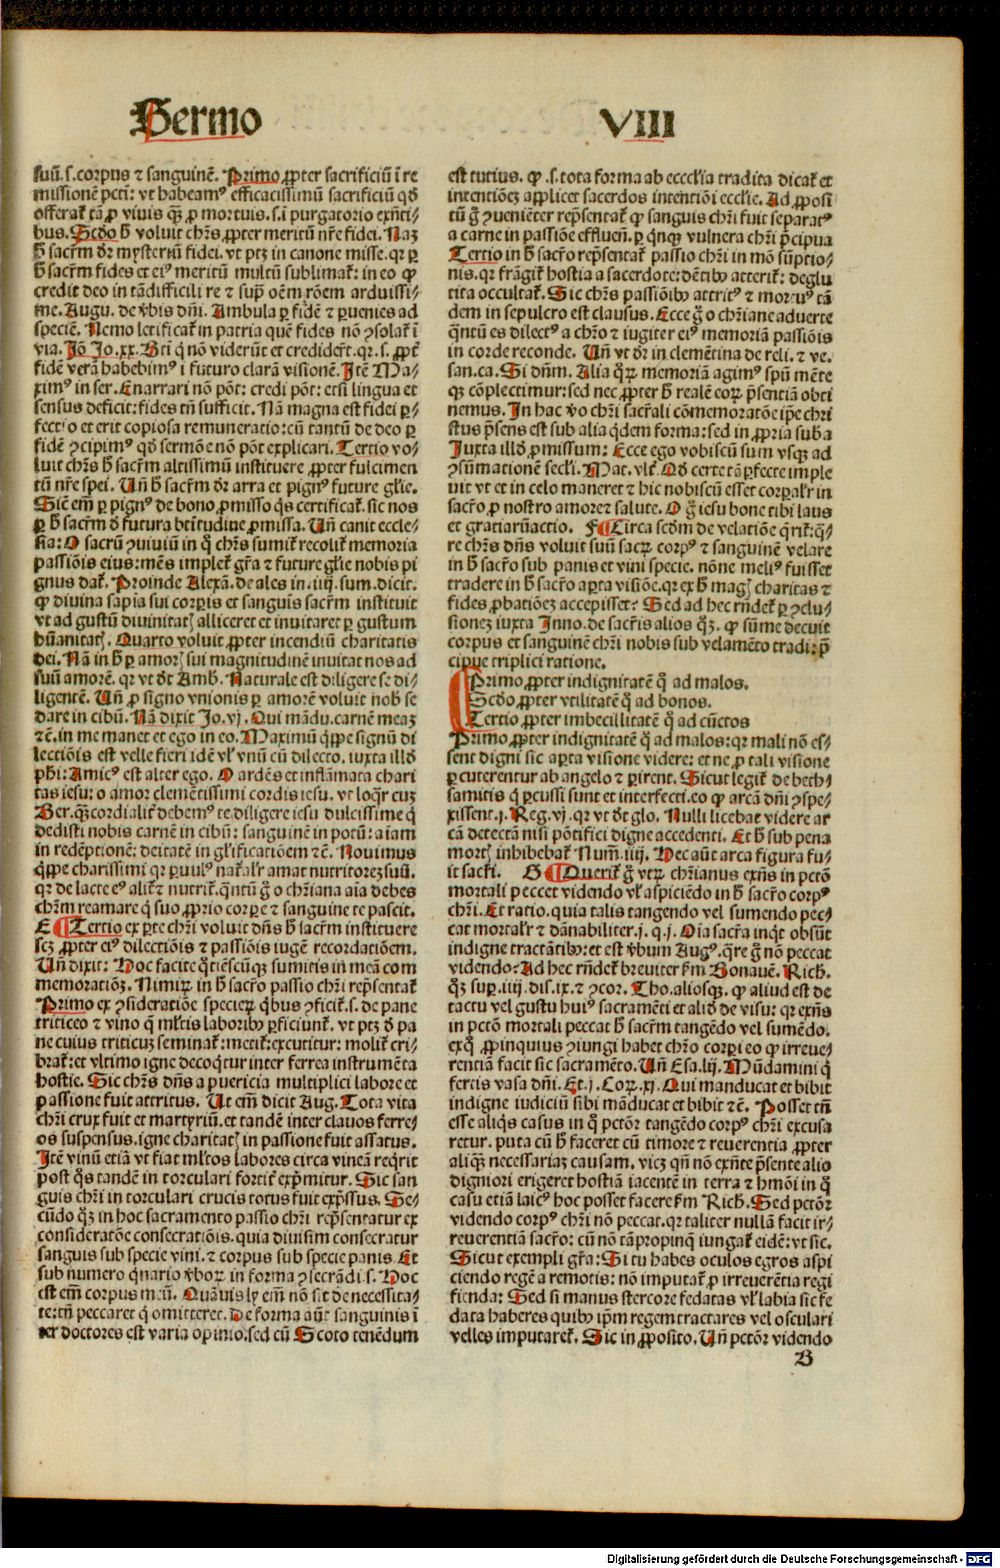 Sermo
VIII
suū.s.corpus ⁊ sanguinē. Primo ꝓpter sacrificiū ī re
missionē pctī: vt habeamꝰ efficacissimū sacrificiū qd̄
offerat̄ tā ꝓ viuis qꝫ ꝓ mortuis.s.ī purgatorio exn̄ti⸗
bus. Scd̄o h̄ voluit chr̄s ꝓpter meritū nr̄e fidei. Naꝫ
h̄ sacr̄m dr̄ mysteriū fidei. vt ptꝫ in canone misse.qꝛ ꝑ
h̄ sacr̄m fides et eiꝰ meritū multū sublimat̄: in eo ꝙ
credit deo in tādifficili re ⁊ supͥ oēm rōem arduissi⸗
me. Augu. de v̄bis dn̄i. Ambula ꝑ fidē ⁊ ꝑuenies ad
speciē. Nemo letificat̄ in patria quē fides nō ꝯsolat̄ ī
via. Jō Jo.xx. Bt̄i q̄ nō viderūt et crediderūt.qꝛ.s. ꝓpt̄
fidē verā habebimꝰ ī futuro clarā visionē. Itē Ma⸗
ximꝰ in ser. Enarrari nō pōt: credi pōt: etsi lingua et
sensus deficit: fides tn̄ sufficit. Nā magna est fidei ꝑ⸗
fectio et erit copiosa remuneratio: cū tantū de deo ꝑ
fidē ꝯcipimꝰ qd̄ sermōe nō pōt explicari. Tertio vo⸗
luit chr̄s h̄ sacr̄m altissimū instituere ꝓpter fulcimen
tū nr̄e spei. Un̄ h̄ sacr̄m dr̄ arra et pignꝰ future gl̄ie.
Sic em̄ ꝑ pignꝰ de bono ꝓmisso qͥs certificat̄. sic nos
ꝑ h̄ sacr̄m d̄ futura bt̄itudine ꝓmissa. Un̄ canit eccle⸗
sia: O sacrū ꝯuiuiū in q̄ chr̄s sumit̄ recolit̄ memoria
passiōis eius: mēs implet̄ gr̄a ⁊ future gl̄ie nobis pi
gnus dat̄. Proinde Alexā. de ales in.iiij.sum.dicit.
ꝙ diuina sapīa sui corꝑis et sanguīs sacr̄m instituit
vt ad gustū diuinitatꝭ alliceret et inuitaret ꝑ gustum
hūanitatꝭ. Quarto voluit ꝓpter incendiū charitatis
dei. Nā in h̄ ꝑ amorꝭ sui magnitudinē inuitat nos ad
suū amorē. qꝛ vt dt̄ Amb. Naturale est diligere se di⸗
ligentē. Un̄ ꝓ signo vnionis ꝑ amorē voluit nob̄ se
dare in cibū. Nā dixit Jo.vj. Qui mādu.carnē meaꝫ
⁊c̄. in me manet et ego in eo. Maximū qͥppe signū di
lectiōis est velle fieri idē vl̓ vnū cū dilecto. iuxta illd̄
ph̄i: Amicꝰ est alter ego. O ardēs et inflāmata chari
tas iesu: o amor clemētissimi cordis iesu. vt loqͣr cuꝫ
Ber. qꝫcordialit̄ debemꝰ te.diligere iesu dulcissime q̄
dedisti nobis carnē in cibū: sanguinē in potū: aīam
in redēptionē: deitatē in gl̄ificatiōem ⁊c̄. Nouimus
qͥppe charissimi qꝛ ꝑuulꝰ nat̄al̄r amat nutritoreꝫ suū.
qꝛ de lacte eiꝰ alit̄ ⁊ nutrit̄. qͣntū g̊ o chr̄iana aīa debes
chr̄m reamare q̄ suo ꝓprio corꝑe ⁊ sanguine te pascit.
E Tertio ex ꝑte chr̄i voluit dn̄s h̄ sacr̄m instituere
scꝫ ꝓpter eiꝰ dilectiōis ⁊ passiōis iugē recordatiōem.
Un̄ dixit: Hoc facite qͦtiēscūqꝫ sumitis in meā com
memoratioꝫ. Nimiꝝ in h̄ sacr̄o passio chr̄i rep̄sentat̄
Primo ex ꝯsideratiōe specieꝝ qͥbus ꝯficit̄.s.de pane
triticeo ⁊ vino q̄ ml̄tis laboribꝰ ꝑficiunt̄. vt ptꝫ d̄ pa
ne cuius triticuꝫ seminat̄: metit̄: excutitur: molit̄ cri⸗
brat̄: et vltimo igne decoqͥtur inter ferrea instrumēta
hostie. Sic chr̄s dn̄s a puericia multiplici labore et
passione fuit attritus. Ut em̄ dicit Aug. Tota vita
chr̄i crux fuit et martyriū. et tandē inter clauos ferre⸗
os suspensus. igne charitatꝭ in passione fuit assatus.
Itē vinū etiā vt fiat ml̄tos labores circa vineā reqͥrit
post qͦs tandē in torculari fortit̄ exp̄mitur. Sic san
guis chr̄i in torculari crucis totus fuit exp̄ssus. Se⸗
cūdo qꝫ in hoc sacramento passio chr̄i rep̄sentatur ex
consideratōe consecratiōis. quia diuisim consecratur
sanguis sub specie vini. ⁊ corpus sub specie panis. Et
sub numero qͥnario v̄boꝝ in forma ꝯsecrādi.s. Hoc
est em̄ corpus meū. Quāuis ly em̄ nō sit de necessita⸗
te: tn̄ peccaret q̄ omitteret. De forma aūt sanguinis ī
ter doctores est varia opinio. sed cū Scoto tenēdum
est tutius. ꝙ.s.tota forma ab ecccl̄ia tradita dicat̄ et
intentiōeꝫ applicet sacerdos intentiōi eccl̄ie. Ad ꝓposi
tū g̊ ꝯueniēter rep̄sentat̄ ꝙ sanguis chr̄i fuit separatꝰ
a carne in passiōe effluen̄. ꝑ qͥnqꝫ vulnera chr̄i p̄cipua
Tertio in h̄ sacr̄o rep̄sentat̄ passio chr̄i in mō sūptio⸗
nis. qꝛ frāgit̄ hostia a sacerdote: dētibꝰ atterit̄: deglu
tita occultat̄. Sic chr̄s passiōibꝰ attritꝰ ⁊ mortuꝰ tā
dem in sepulcro est clausus. Ecce g̊ o chr̄iane aduerte
qͣntū es dilectꝰ a chr̄o ⁊ iugiter eiꝰ memoriā passiōis
in corde reconde. Un̄ vt dr̄ in clementina de reli. ⁊ ve.
san.ca. Si dn̄m. Alia qͣꝝ memoriā agimꝰ spū mēte
qꝫ cōplectimur: sed nec ꝓpter h̄ realē eoꝝ p̄sentiā obti
nemus. In hac v̄o chr̄i sacr̄ali cōmemoratōe ip̄e chri
stus p̄sens est sub alia qͥdem forma: sed in ꝓpria suba
Iuxta illd̄ ꝓmissum: Ecce ego vobiscū sum vsqꝫ ad
ꝯsūmationē secl̄i. Mat. vlt̄. Qd̄ certe tā ꝑfecte imple
uit vt et in celo maneret ⁊ hic nobiscū esset corꝑal̄r in
sacr̄o ꝓ nostro amore⁊ salute. O g̊ iesu bone tibi laus
et gratiaꝝactio. F Circa scd̄m de velatiōe qͥrit̄: qͣ⸗
re chr̄s dn̄s voluit suū sacꝝ corpꝰ ⁊ sanguinē velare
in h̄ sacr̄o sub panis et vini specie. nōne meliꝰ fuisset
tradere in h̄ sacr̄o aꝑta visiōe. qꝛ ex h̄ magꝭ charitas ⁊
fides ꝓbatiōeꝫ accepisset? Sed ad hec rn̄det̄ ꝑ ꝯclu⸗
sioneꝫ iuxta Inno. de sacr̄is alios qͦꝫ. ꝙ sūme decuit
corpus et sanguinē chr̄i nobis sub velamēto tradi: p̄
cipue triplici ratione.
Primo ꝓpter indignitatē qͦ ad malos.
Scd̄o ꝓpter vtilitatē qͦ ad bonos.
Tertio ꝓpter imbecillitatē qͦ ad cūctos
Primo ꝓpter indignitatē qͦ ad malos: qꝛ mali nō es⸗
sent digni sic aꝑta visione videre: et ne ꝓ tali visione
ꝑcuterentur ab angelo ⁊ ꝑirent. Sicut legit̄ de beth⸗
samitis q̄ ꝑcussi sunt et interfecti. eo ꝙ arcā dn̄i ꝯspe⸗
xissent. j. Reg. vj. qꝛ vt dt̄ glo. Nulli licebat videre ar
cā detectā nisi pōtifici digne accedenti. Et h̄ sub pena
mortꝭ inhibebat̄ Num̄. iiij. Hec aūt arca figura fu⸗
it sacr̄i. G Querit̄ g̊ vtꝝ chr̄ianus exn̄s in pctō
mortali peccet videndo vl̓ aspiciēdo in h̄ sacr̄o corpꝰ
chr̄i. Et ratio. quia talis tangendo vel sumendo pec⸗
cat mortal̄r ⁊ dānabiliter. j. q. j. Oīa sacr̄a inqͥt obsūt
indigne tractātibꝰ: et est v̄bum Augꝰ. qͣre g̊ nō peccat
videndo? Ad hec rn̄det̄ breuiter ẜm Bonauē. Rich.
qͦꝫ suꝑ .iiij.dis.ix.⁊ ꝯcor. Tho. aliosqꝫ. ꝙ aliud est de
tactu vel gustu huiꝰ sacramēti et aliđ de visu: qꝛ exn̄s
in pctō mortali peccat h̄ sacr̄m tangēdo vel sumēdo.
exqͦ ꝓpinquius ꝯiungi habet chr̄o corꝑi eo ꝙ irreue⸗
rentiam facit sic sacramēto. Un̄ Esa. lij. Mūdamini q̄
fertis vasa dn̄i. Et .j. Coꝝ.xj. Qui manducat et bibit
indigne iudiciū sibi māducat et bibit ⁊c̄. Posset tn̄
esse aliqͥs casus in qͦ pctōr tangēdo corpꝰ chr̄i excusa
retur. puta cū h̄ faceret cū timore ⁊ reuerentia ꝓpter
aliqͣꝫ necessariaꝫ causam. vicꝫ qn̄ nō exn̄te p̄sente alio
digniori erigeret hostiā iacentē in terra ⁊ hmōi in qͦ
casu etiā laicꝰ hoc posset facere ẜm Rich. Sed pctōr
videndo corpꝰ chr̄i nō peccat. qꝛ taliter nullā facit ir⸗
reuerentiā sacr̄o: cū nō tāꝓpinqͦ iungat̄ eidē: vt sic.
Sicut exempli gr̄a: Si tu habes oculos egros aspi
ciendo regē a remotis: nō imputat̄ ꝓ irreuerētia regi
fienda: Sed si manus stercore fedatas vl̓ labia sic fe
data haberes quibꝰ ip̄m regem tractares vel osculari
velles imputaret̄. Sic in ꝓposito. Un̄ pctōr videndo
B
Digitalisierung gefördert durch die Deutsche Forschungsgemeinschaft - DFG